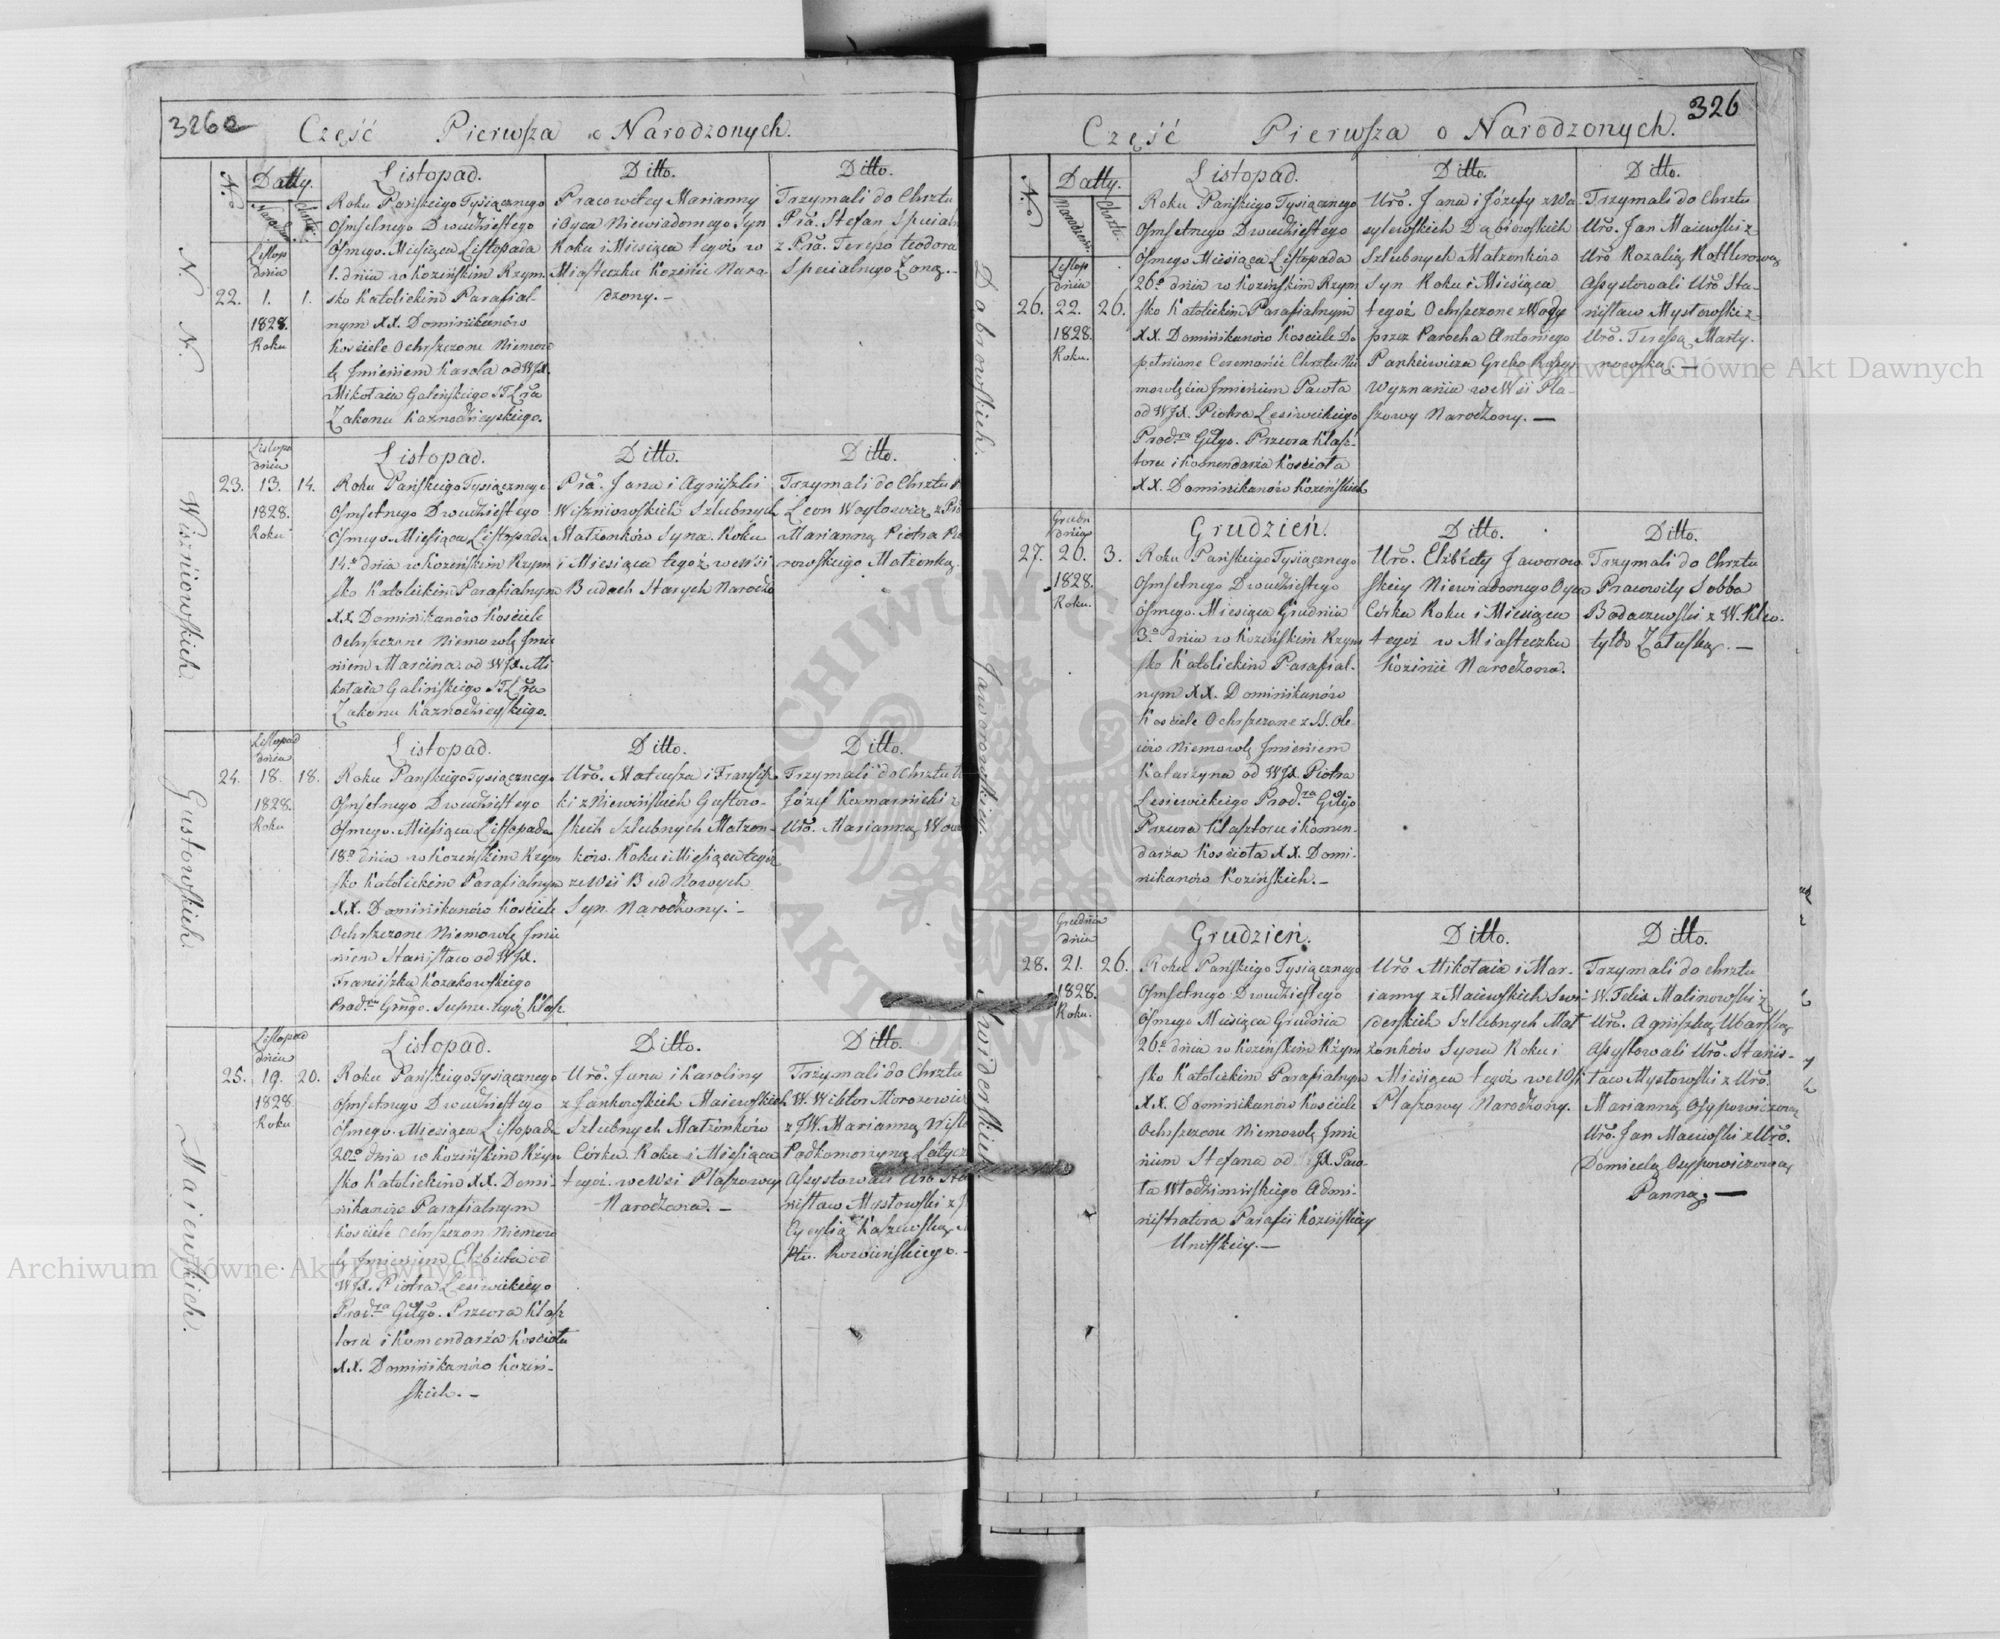 326a
Część Pierwsza o Narodzonych.
No
Datty.
Narodzenia
Chrztu
N. N.
22.
Listop
dnia
1.
1828.
Roku
1.
Listopad.
Roku Pańskiego Tysiącznego
Osmsetnego Dwudziestego
Osmego. Miesiąca Listopada
1. dnia w Kozińskim Rzym
sko Katolickim Parafial-
nym XX. Dominikanów
Kościele Ochrzczone Niemow
lę Imieniem Karola od WJX.
Mikołaia Galińskiego
Zakonu Kaznodzieyskiego.
Ditto.
Pracowitey Marianny
i Oyca Niewiadomego Syn
Roku i Miesiąca tegoż w
Miasteczku Kozinie Naro-
dzony. -
Ditto.
Trzymali do Chrztu
Pra. Stefan
z Pra. Teresą teodora
Specialnego Żoną. -
Wiszniowskich.
23.
Listopa
dnia
13.
1828.
Roku
14.
Listopad.
Roku Pańskiego Tysiącznego
Osmsetnego Dwudziestego
Osmego. Miesiąca Listopada
14o dnia w Kozińskim Rzym
sko Katolickim Parafialnym
XX. Dominikanów Kościele
Ochrzczone Niemowlę Imie
niem Marcina. od WJX. Mi
kołaia Galińskiego
Zakonu Kaznodzieyskiego.
Ditto.
Pra. Jana i Agniszki
Wiszniowskich Szlubnych
Małżonków Syna. Roku
i Miesiąca tegoż we Wsi
Budach Starych Narodzo
Ditto.
Trzymali do Chrztu
Leon Woytowicz z
Marianną Piotra
rowskiego Małżonką.
Gustowskich.
24.
Listopad
dnia
18.
1828.
Roku
18.
Listopad.
Roku Pańskiego Tysiącznego
Osmsetnego Dwudziestego
Osmego. Miesiąca Listopada
18o dnia w Kozińskim Rzym
sko Katolickim Parafialnym
XX. Dominikanów Kościele
Ochrzczone Niemowlę Imie
niem Stanisław od WJX.
Franciszka Kozakowskiego
tegoż Klasz.
Ditto.
Uro. Mateusza i Francisz
ki z Niewińskich Gustow-
skich Szlubnych Małżon-
ków. Roku i Miesiąca tegoż
ze Wsi Bud Nowych
Syn Narodzony. -
Ditto.
Trzymali do Chrztu
Józef Komarnicki z
Uro. Marianną
Maiewskich.
25.
Listopad
dnia
19.
1828
Roku
20.
Listopad.
Roku Pańskiego Tysiącznego
Osmsetnego Dwudziestego
Osmego. Miesiąca Listopada
20o dnia w Kozińskim Rzym
sko Katolickim XX. Domi-
nikanów Parafialnym
Kościele Ochrzczon Niemow
lę Imieniem Elżbieta od
WJX. Piotra Lesiwickiego
Przeora Klasz
tora i Komendarza Kościoła
XX. Dominikanów Koziń-
skich. -
Ditto.
Uro. Jana i Karoliny
z Jankowskich Maiewskich
Szlubnych Małżonków
Córka. Roku i Miesiąca
tegoż. we Wsi Płaszowey
Narodzona. -
Ditto.
Trzymali do Chrztu
W. Wiktor Morozowicz
z JW. Marianną
Podkomorzyną
Asystowali Uro
nisław Mysłowski z
Cycylią Kaszewską
326
Część Pierwsza o Narodzonych.
No
Datty.
Narodzenia
Chrztu
Dąbrowskich.
26.
Listop
dnia
22.
1828
Roku.
26.
Listopad.
Roku Pańskiego Tysiącznego
Osmsetnego Dwudziestego
Osmego Miesiąca Listopada
26o dnia w Kozińskim Rzym
sko Katolickim Parafialnym
XX. Dominikanów Kościele Do
pełnione Ceremonie Chrztu Nie
mowlęcia Imieniem Pawła
od WJX. Piotra Lesiwickiego
Przeora Klasz-
toru i Komendarza Kościoła
XX. Dominikanów Kozińskich
Ditto.
Uro. Jana i Józefy z Wa
sylewskich Dąbrowskich
Szlubnych Małżonków
Syn Roku i Miesiąca
tegoż Ochrzczone z Wody
przez Parocha Antoniego
Pankiewicza Greko
Wyznania we Wsi Pła-
szowy Narodzony. -
Ditto.
Trzymali do Chrztu
Uro. Jan Maiewski z
Uro Rozalią Kottlerową
Asystowali Uro Sta-
nisław Mysłowski z
Uro. Teresą Marty-
nowską. -
Jaworowskich.
27.
Grudn
Dnia
26.
1828.
Roku.
3.
Grudzień.
Roku Pańskiego Tysiącznego
Osmsetnego Dwudziestego
Osmego. Miesiąca Grudnia
3o dnia w Kozińskim Rzym
sko Katolickim Parafial-
nym XX. Dominikanów
Kościele Ochrzczone z SS. Ole
iów Niemowlę Imieniem
Katarzyna od WJX. Piotra
Lesiwickiego
Przeora Klasztoru i Komen-
darza Kościoła XX. Domi-
nikanów Kozińskich. -
Ditto.
Uro. Elżbiety Jaworow
skiey Niewiadomego Oyca
Córka Roku i Miesiąca
tegoż w Miasteczku
Kozinie Narodzona.
Ditto.
Trzymali do Chrztu
Pracowity Sobba
Badaczewski z W. Klo-
tyldą Załuską. -
Swiderskich
28.
Grudnia
dnia
21.
1828.
Roku.
26.
Grudzień.
Roku Pańskiego Tysiącznego
Osmsetnego Dwudziestego
Osmego Miesiąca Grudnia
26o dnia w Kozińskim Rzym
sko Katolickim Parafialnym
XX. Dominikanów Kościele
Ochrzczone Niemowlę Imie
niem Stefana od JX. Paw-
ła Włodzimirskiego Admi-
nistratora Parafii Kozińskiey
Unitskiey. -
Ditto.
Uro Mikołaia i Mar-
ianny z Maiewskich Swi-
derskich Szlubnych Mał
żonków Syna Roku i
Miesiąca tegoż we Wsi
Płaszowy Narodzony.
Ditto.
Trzymali do chrztu
W. Felix Malinowski z
Uro. Agniszką Ubarską
Asystowali Uro. Stanis-
ław Mysłowski z Uro.
Marianną Osypowiczową
Uro. Jan Maiewski z Uro.
Domicelą Osypowiczową
Panną. -
Archiwum Główne Akt Dawnych
Archiwum Główne Akt Dawnych
ARCHIWUM GŁÓWNE
AKT DAWNYCH